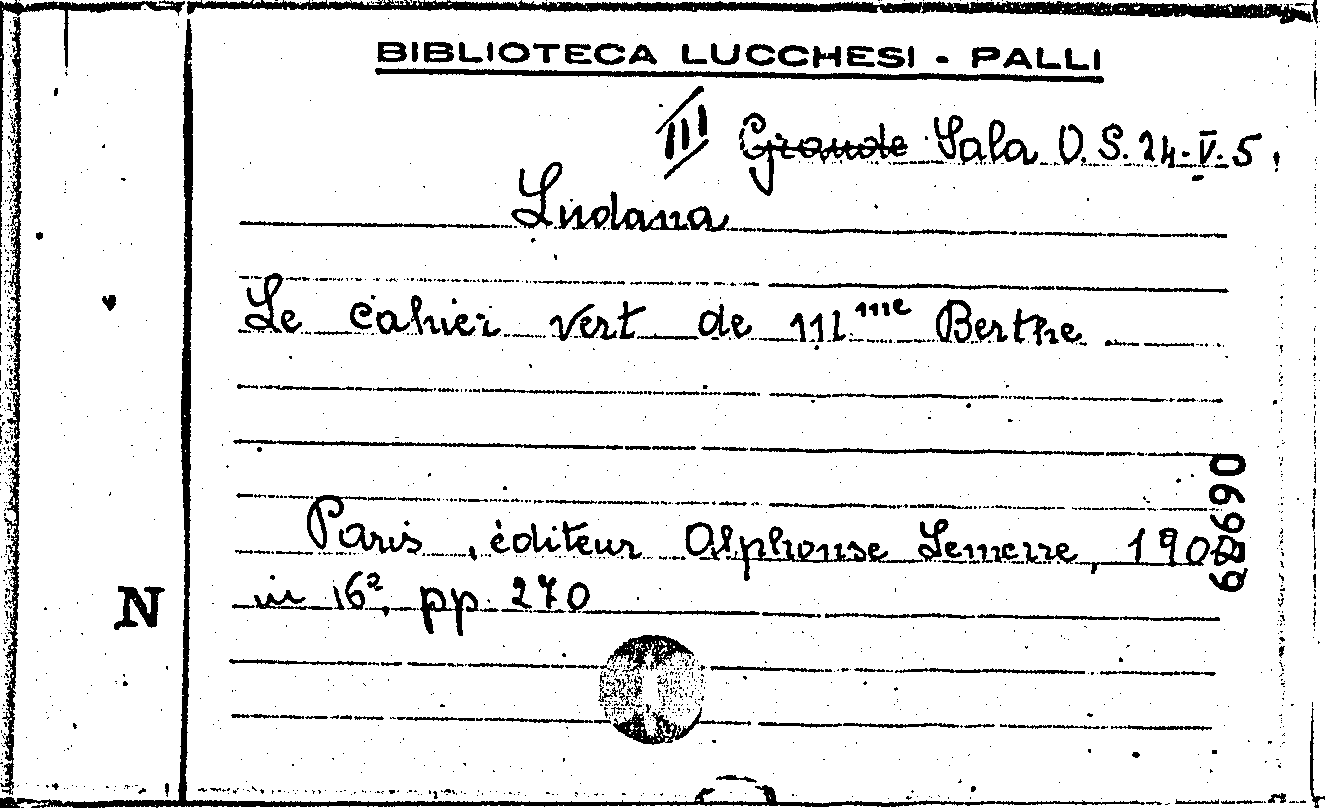 BIBLIOTECA LUCCHESI - PALLI
III Grande Sala O.S. 24.V.5.
Ludana
Le cahier vert de M me Berthe
Paris, éditeur Alphonse Lemerre, 190
in 16°, pp. 270
N